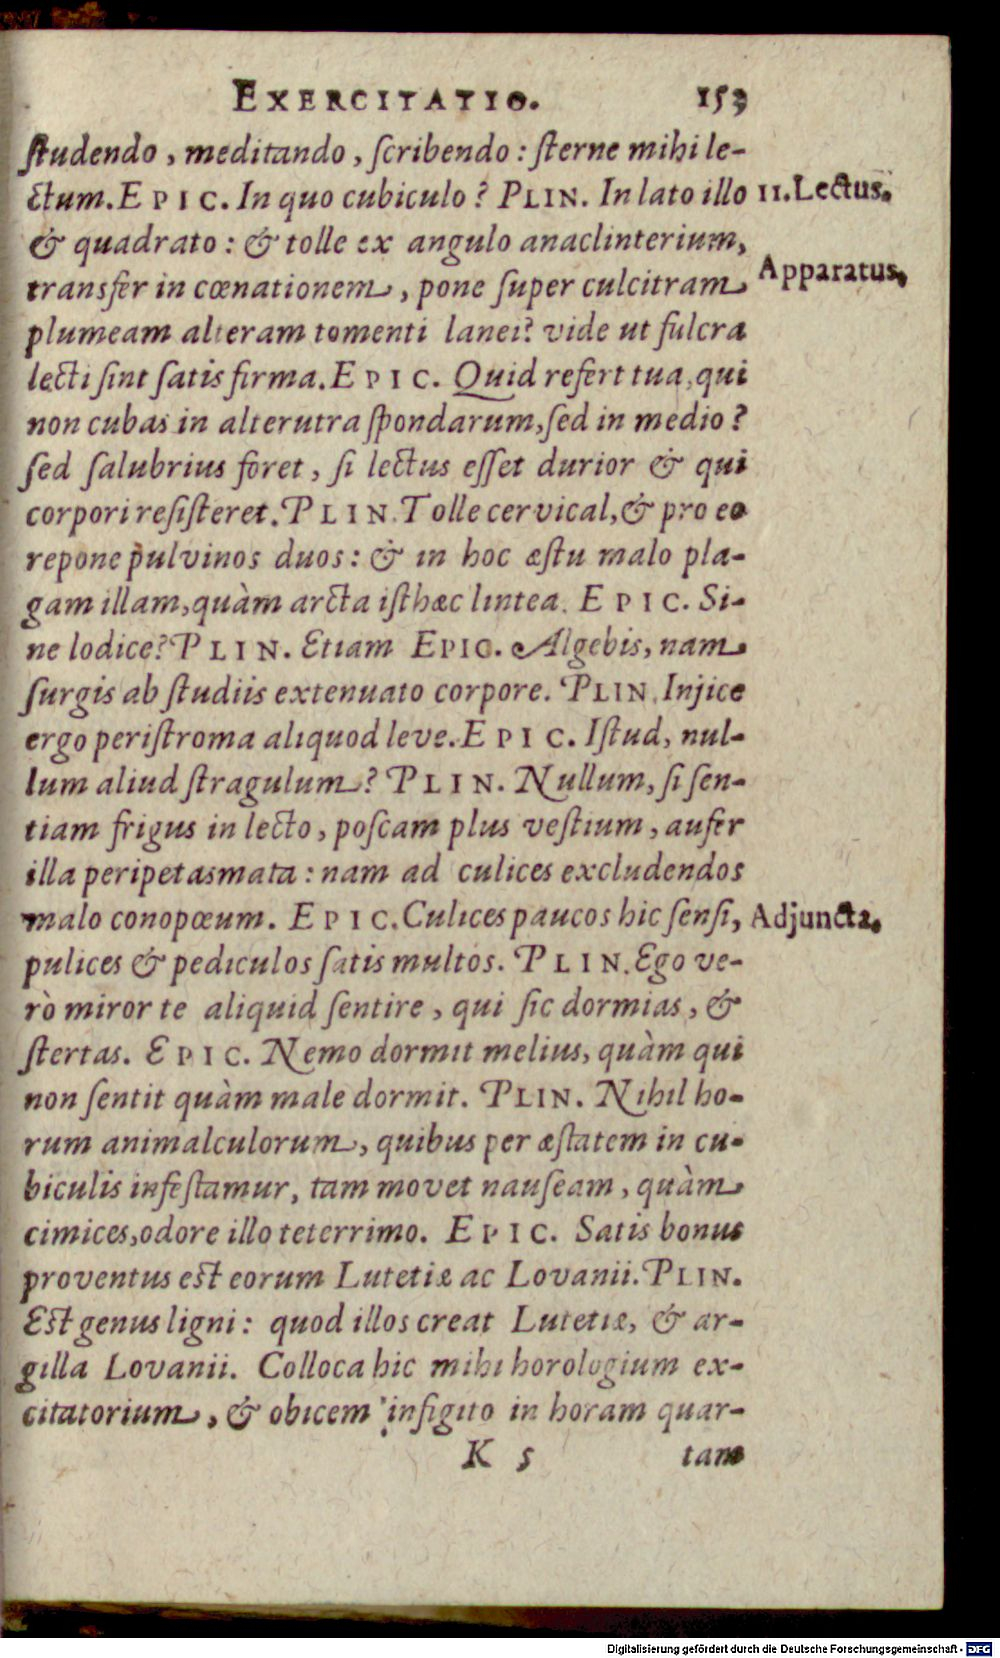 EXERCITATIO. 153
ſtudendo, meditando, ſcribendo: ſterne mihi le-
ctum. EPIC. In quo cubiculo? PLIN. In lato illo
II. Lectus.
& quadrato: & tolle ex angulo anaclinterium,
Apparatus.
transfer in cœnationem, pone ſuper culcitram
plumeam alteram tomenti lanei? vide ut fulcra
lecti ſint ſatis firma. EPIC. Quid refert tua, qui
non cubas in alterutra ſpondarum, ſed in medio?
ſed ſalubrius foret, ſi lectus eſſet durior & qui
corpori reſiſteret. PLIN. Tolle cervical, & pro eo
repone pulvinos duos: & in hoc æſtu malo pla-
gam illam, quàm arcta iſthæc lintea. EPIC. Si-
ne lodice? PLIN. Etiam EPIC. Algebis, nam
ſurgis ab ſtudiis extenuato corpore. PLIN. Injice
ergo periſtroma aliquod leve. EPIC. Iſtud, nul-
lum aliud ſtragulum? PLIN. Nullum, ſi ſen-
tiam frigus in lecto, poſcam plus veſtium, aufer
illa peripetasmata: nam ad culices excludendos
malo conopœum. EPIC. Culices paucos hic ſenſi,
Adjuncta.
pulices & pediculos ſatis multos. PLIN. Ego ve-
rò miror te aliquid ſentire, qui ſic dormias, &
ſtertas. EPIC. Nemo dormit melius, quàm qui
non ſentit quàm male dormit. PLIN. Nihil ho-
rum animalculorum, quibus per æſtatem in cu-
biculis infeſtamur, tam movet nauſeam, quàm
cimices, odore illo teterrimo. EPIC. Satis bonus
proventus eſt eorum Lutetiæ ac Lovanii. PLIN.
Eſt genus ligni: quod illos creat Lutetiæ, & ar-
gilla Lovanii. Colloca hic mihi horologium ex-
citatorium, & obicem infigito in horam quar-
K 5 tam
Digitalisierung gefördert durch die Deutsche Forschungsgemeinschaft - DFG